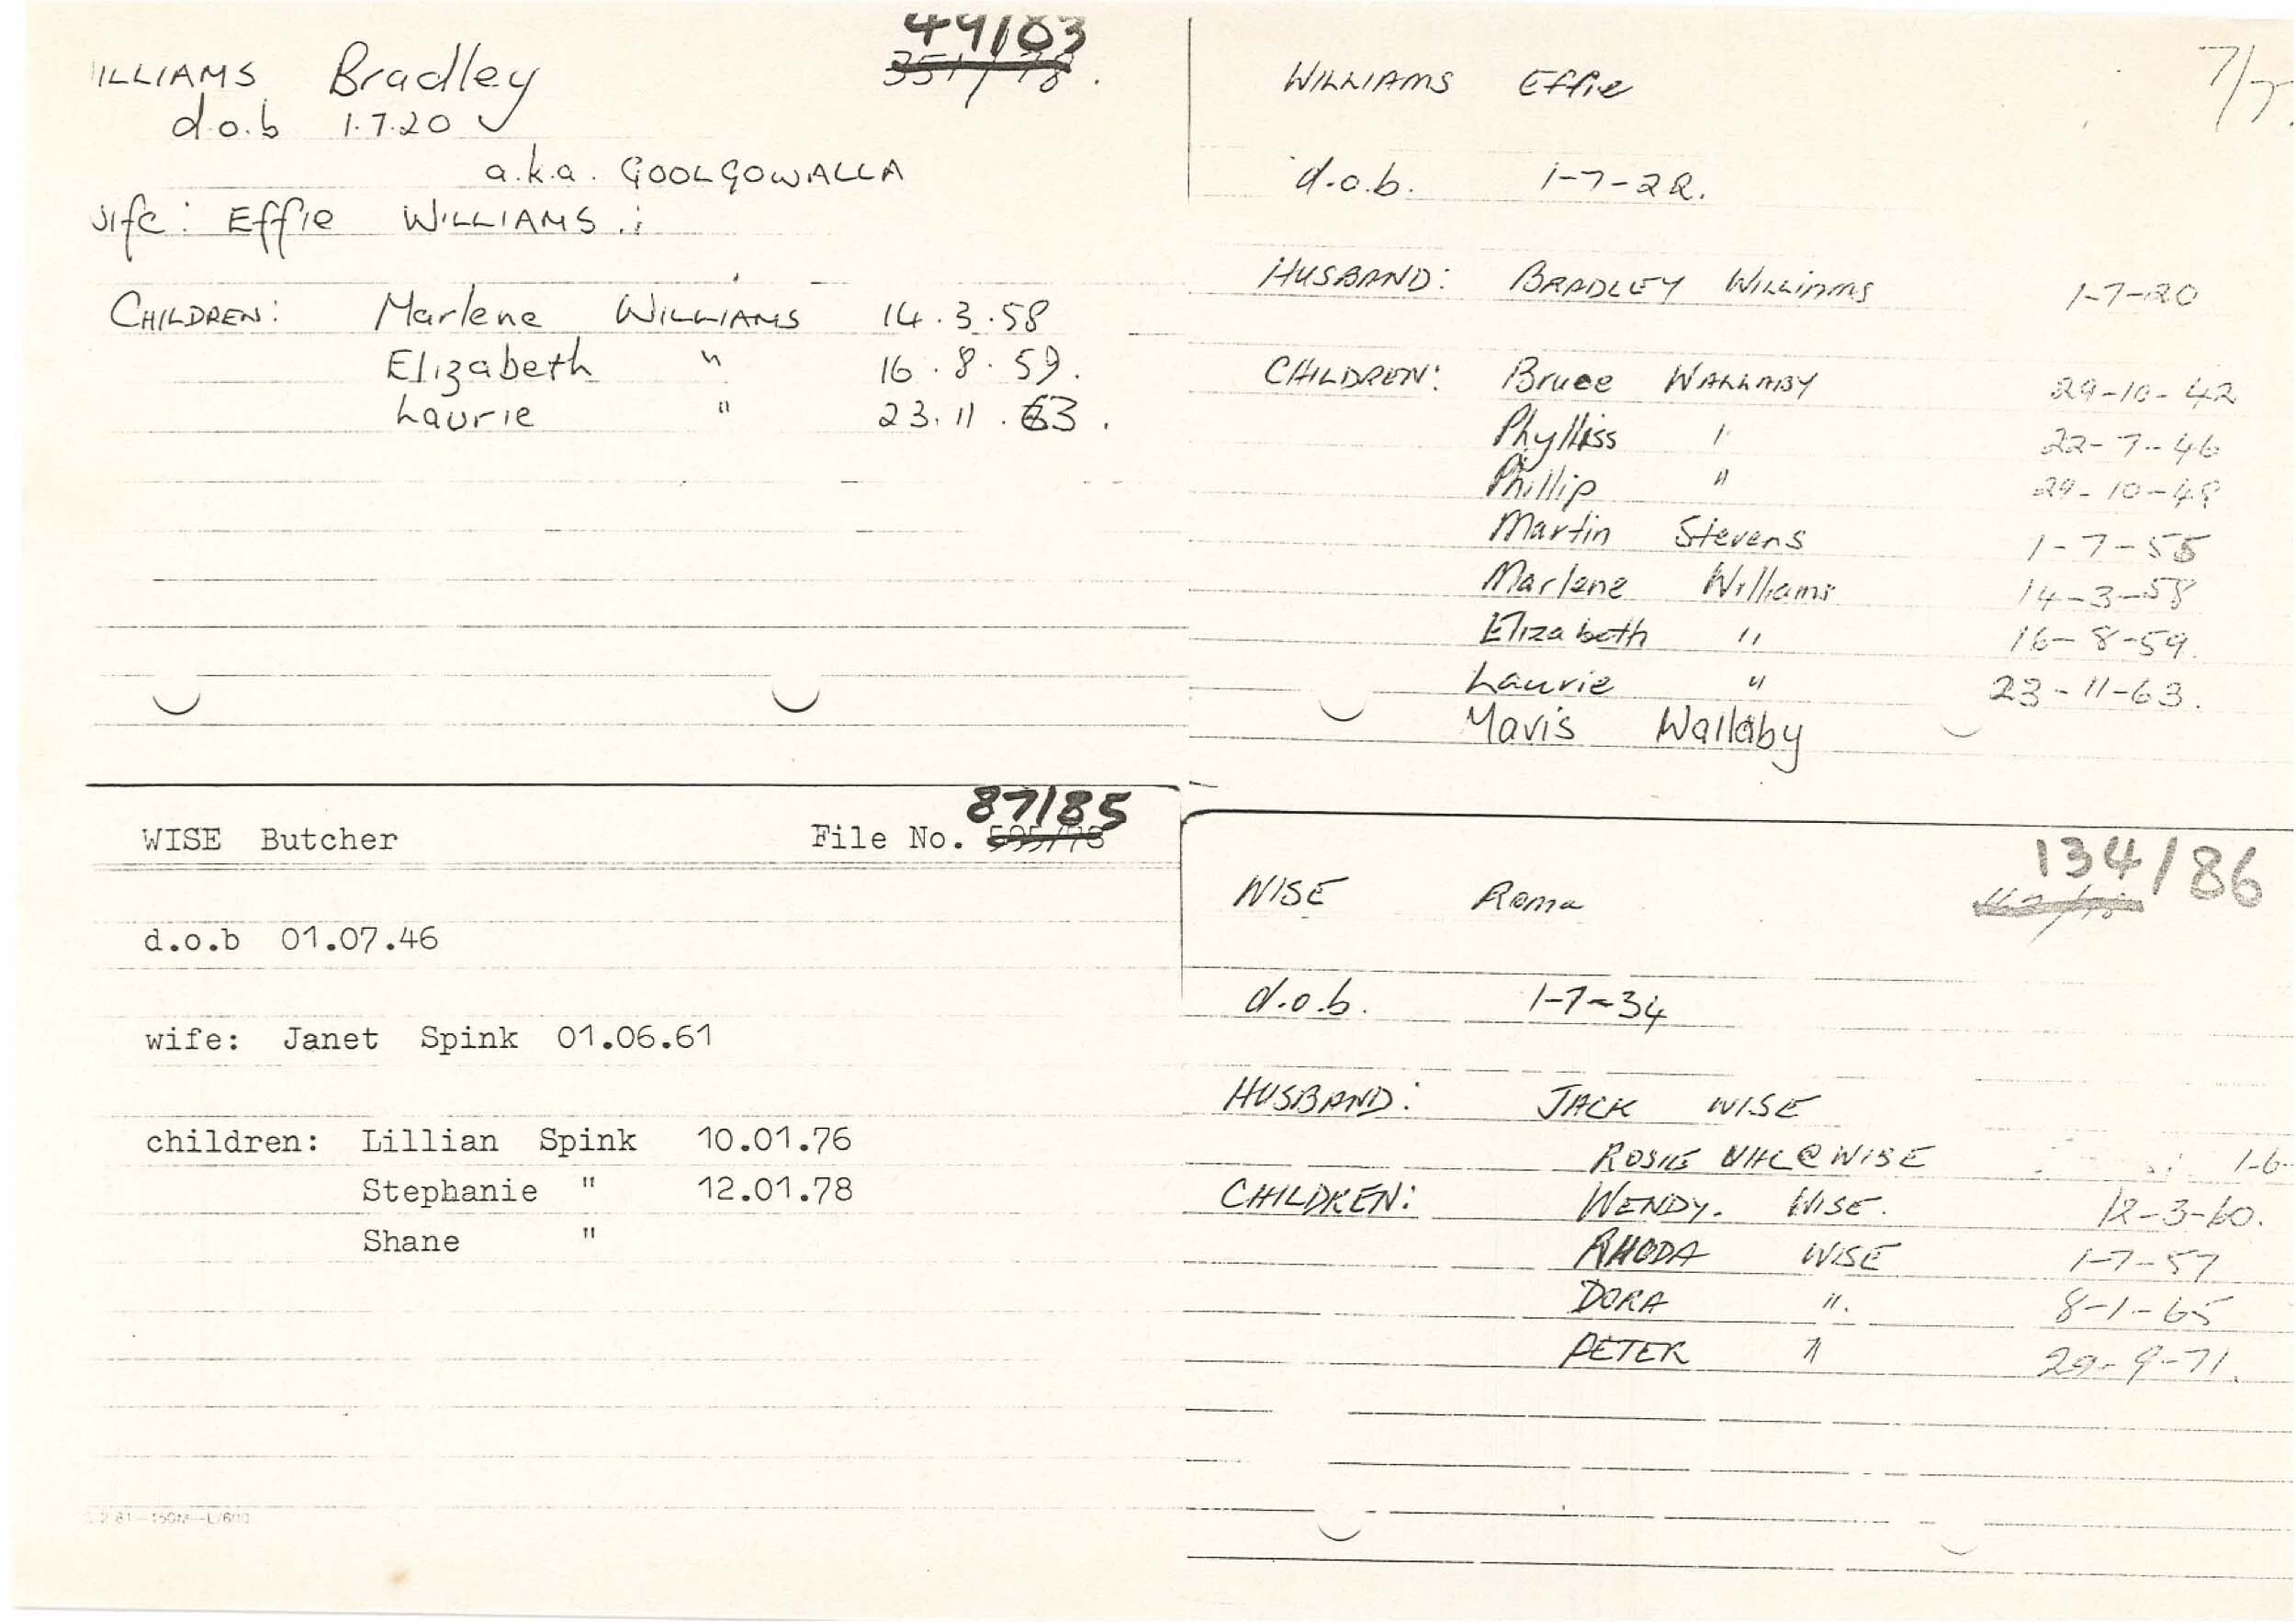 49/83
351/78.
ILLIAMS Bradley
d.o.b 1.7.20
a.k.a. GOOLGOWALLA
wife: Effie WILLIAMS
CHILDREN: Marlene WILLIAMS 14.3.58
Elizabeth " 16.8.59.
Laurie " 23.11.63.
WILLIAMS Effie
d.o.b. 1-7-22.
HUSBAND: BRADLEY WILLIAMS 1-7-20
CHILDREN: Bruce WALLABY 29-10-42
Phylliss " 22-7-46
Phillip " 29-10-48
Martin Stevens 1-7-55
Marlene Williams 14-3-58
Elizabeth " 16-8-59.
Laurie " 23-11-63.
Mavis Wallaby
87/85
WISE Butcher File No. 595/78
d.o.b 01.07.46
wife: Janet Spink 01.06.61
children: Lillian Spink 10.01.76
Stephanie " 12.01.78
Shane "
134/86
WISE Roma
d.o.b. 1-7-34
HUSBAND: JACK WISE
ROSIE @ WISE 1-6-
CHILDREN: WENDY. WISE. 12-3-60.
RHODA WISE 1-7-57
DORA ". 8-1-65
PETER " 29-9-71.